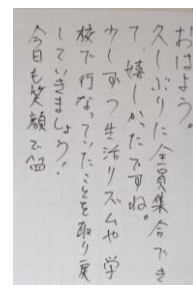 おはよう。
久しぶりに全員集合でき
て、嬉しかったですね。
少しずつ生活リズムや学
校で行なっていたことを取り戻
していきましょう!
今日も笑顔で